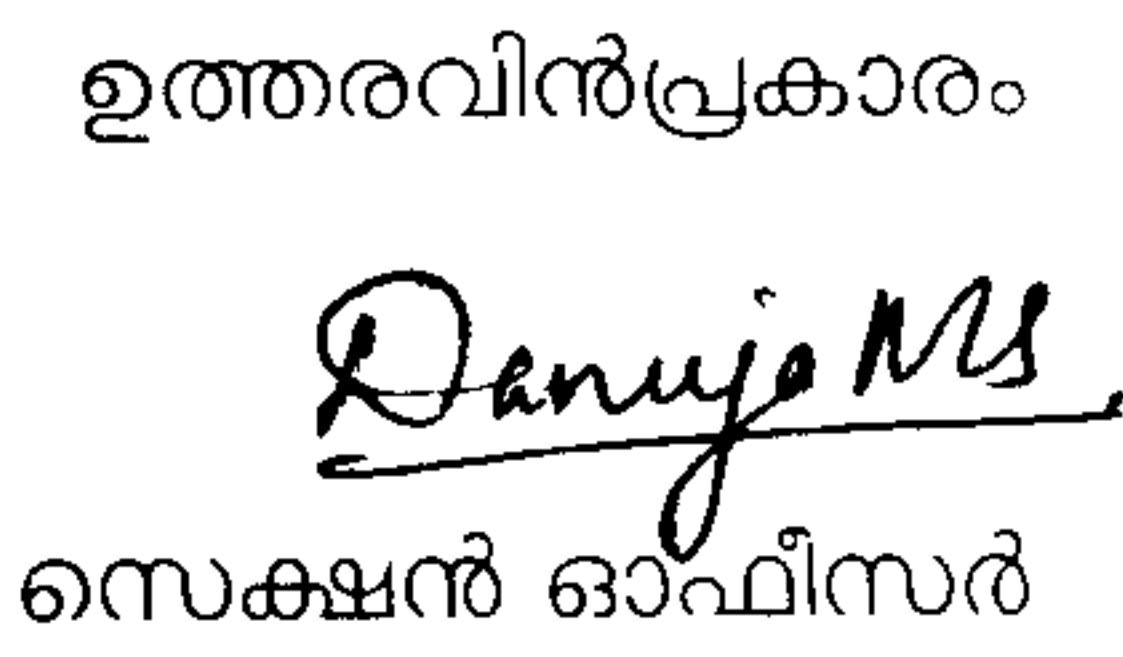 ഉത്തരവിൻപ്രകാരം
Danuja M S
സെക്ഷൻ ഓഫീസർ